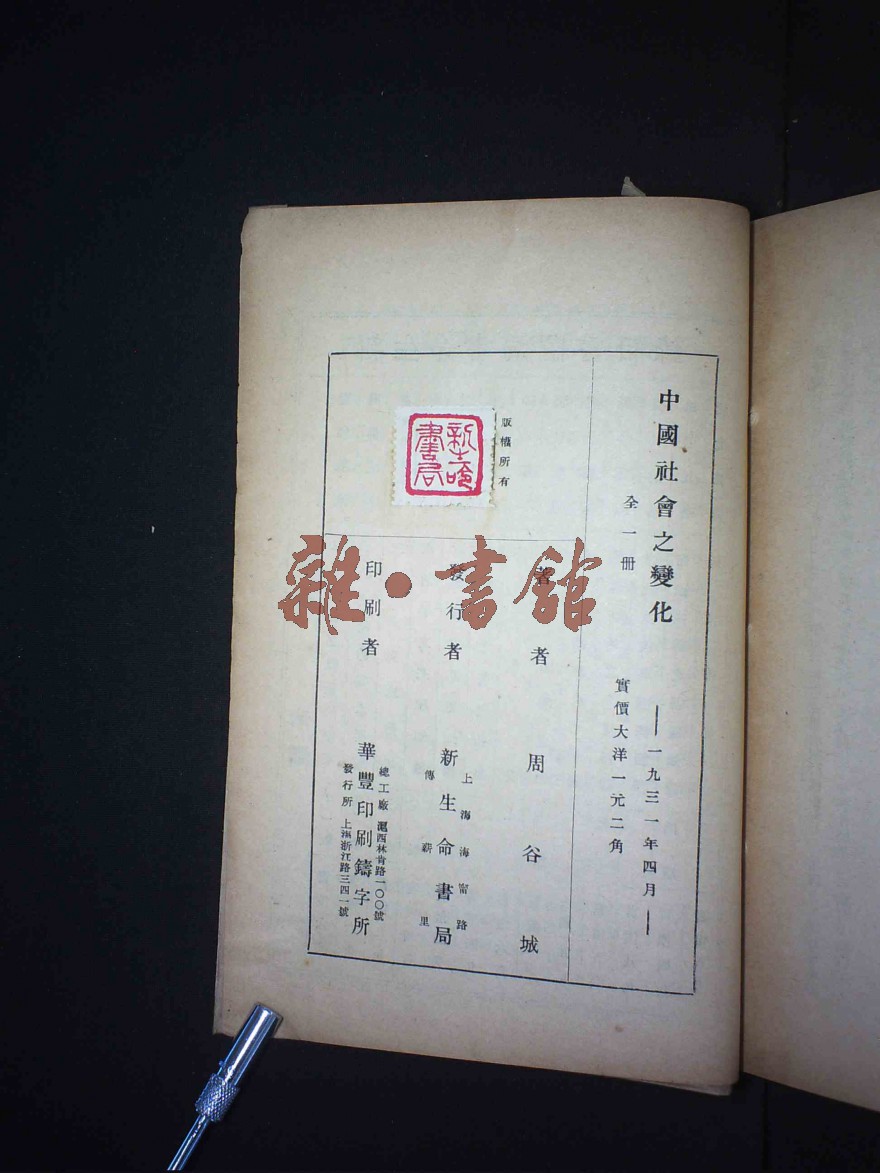 中國社會之變化
——一九三一年四月——
全一冊
實價大洋一元二角
版權所有
新生命書局
著者 周谷城
發行者 新生命書局
上海海甯路
傳薪里
印刷者 華豐印刷鑄字所
總工廠 滬西林肯路一〇〇號
發行所 上海浙江路三四一號
雜·書館